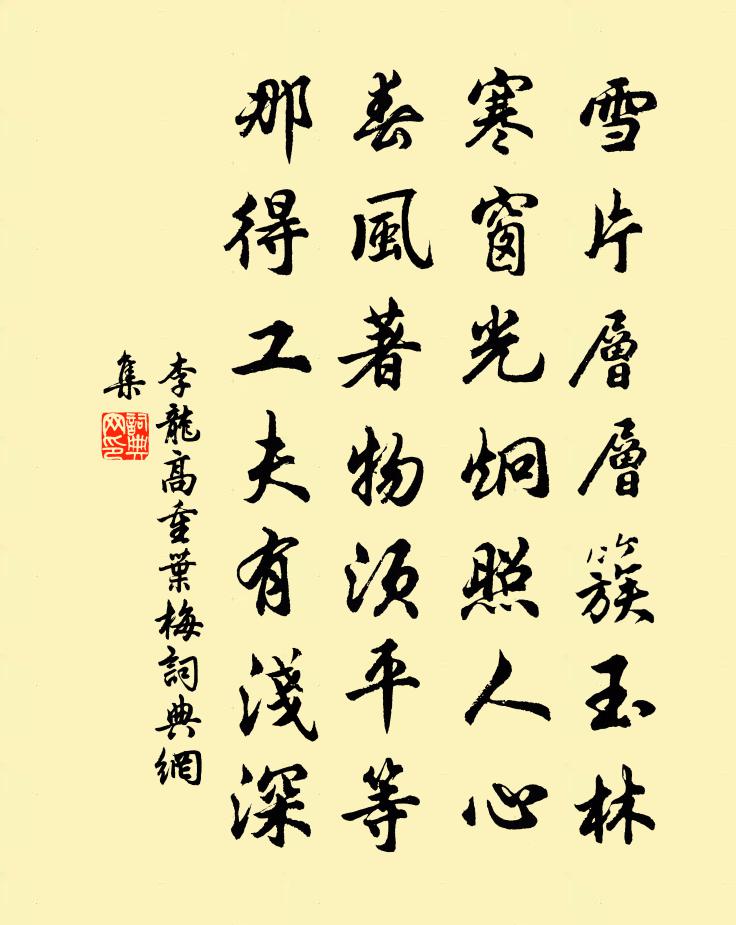 雪片層層簇玉林
寒窗光炯照人心
春風著物須平等
那得工夫有淺深
李龍高重葉梅詞典網
集
詞典
网印